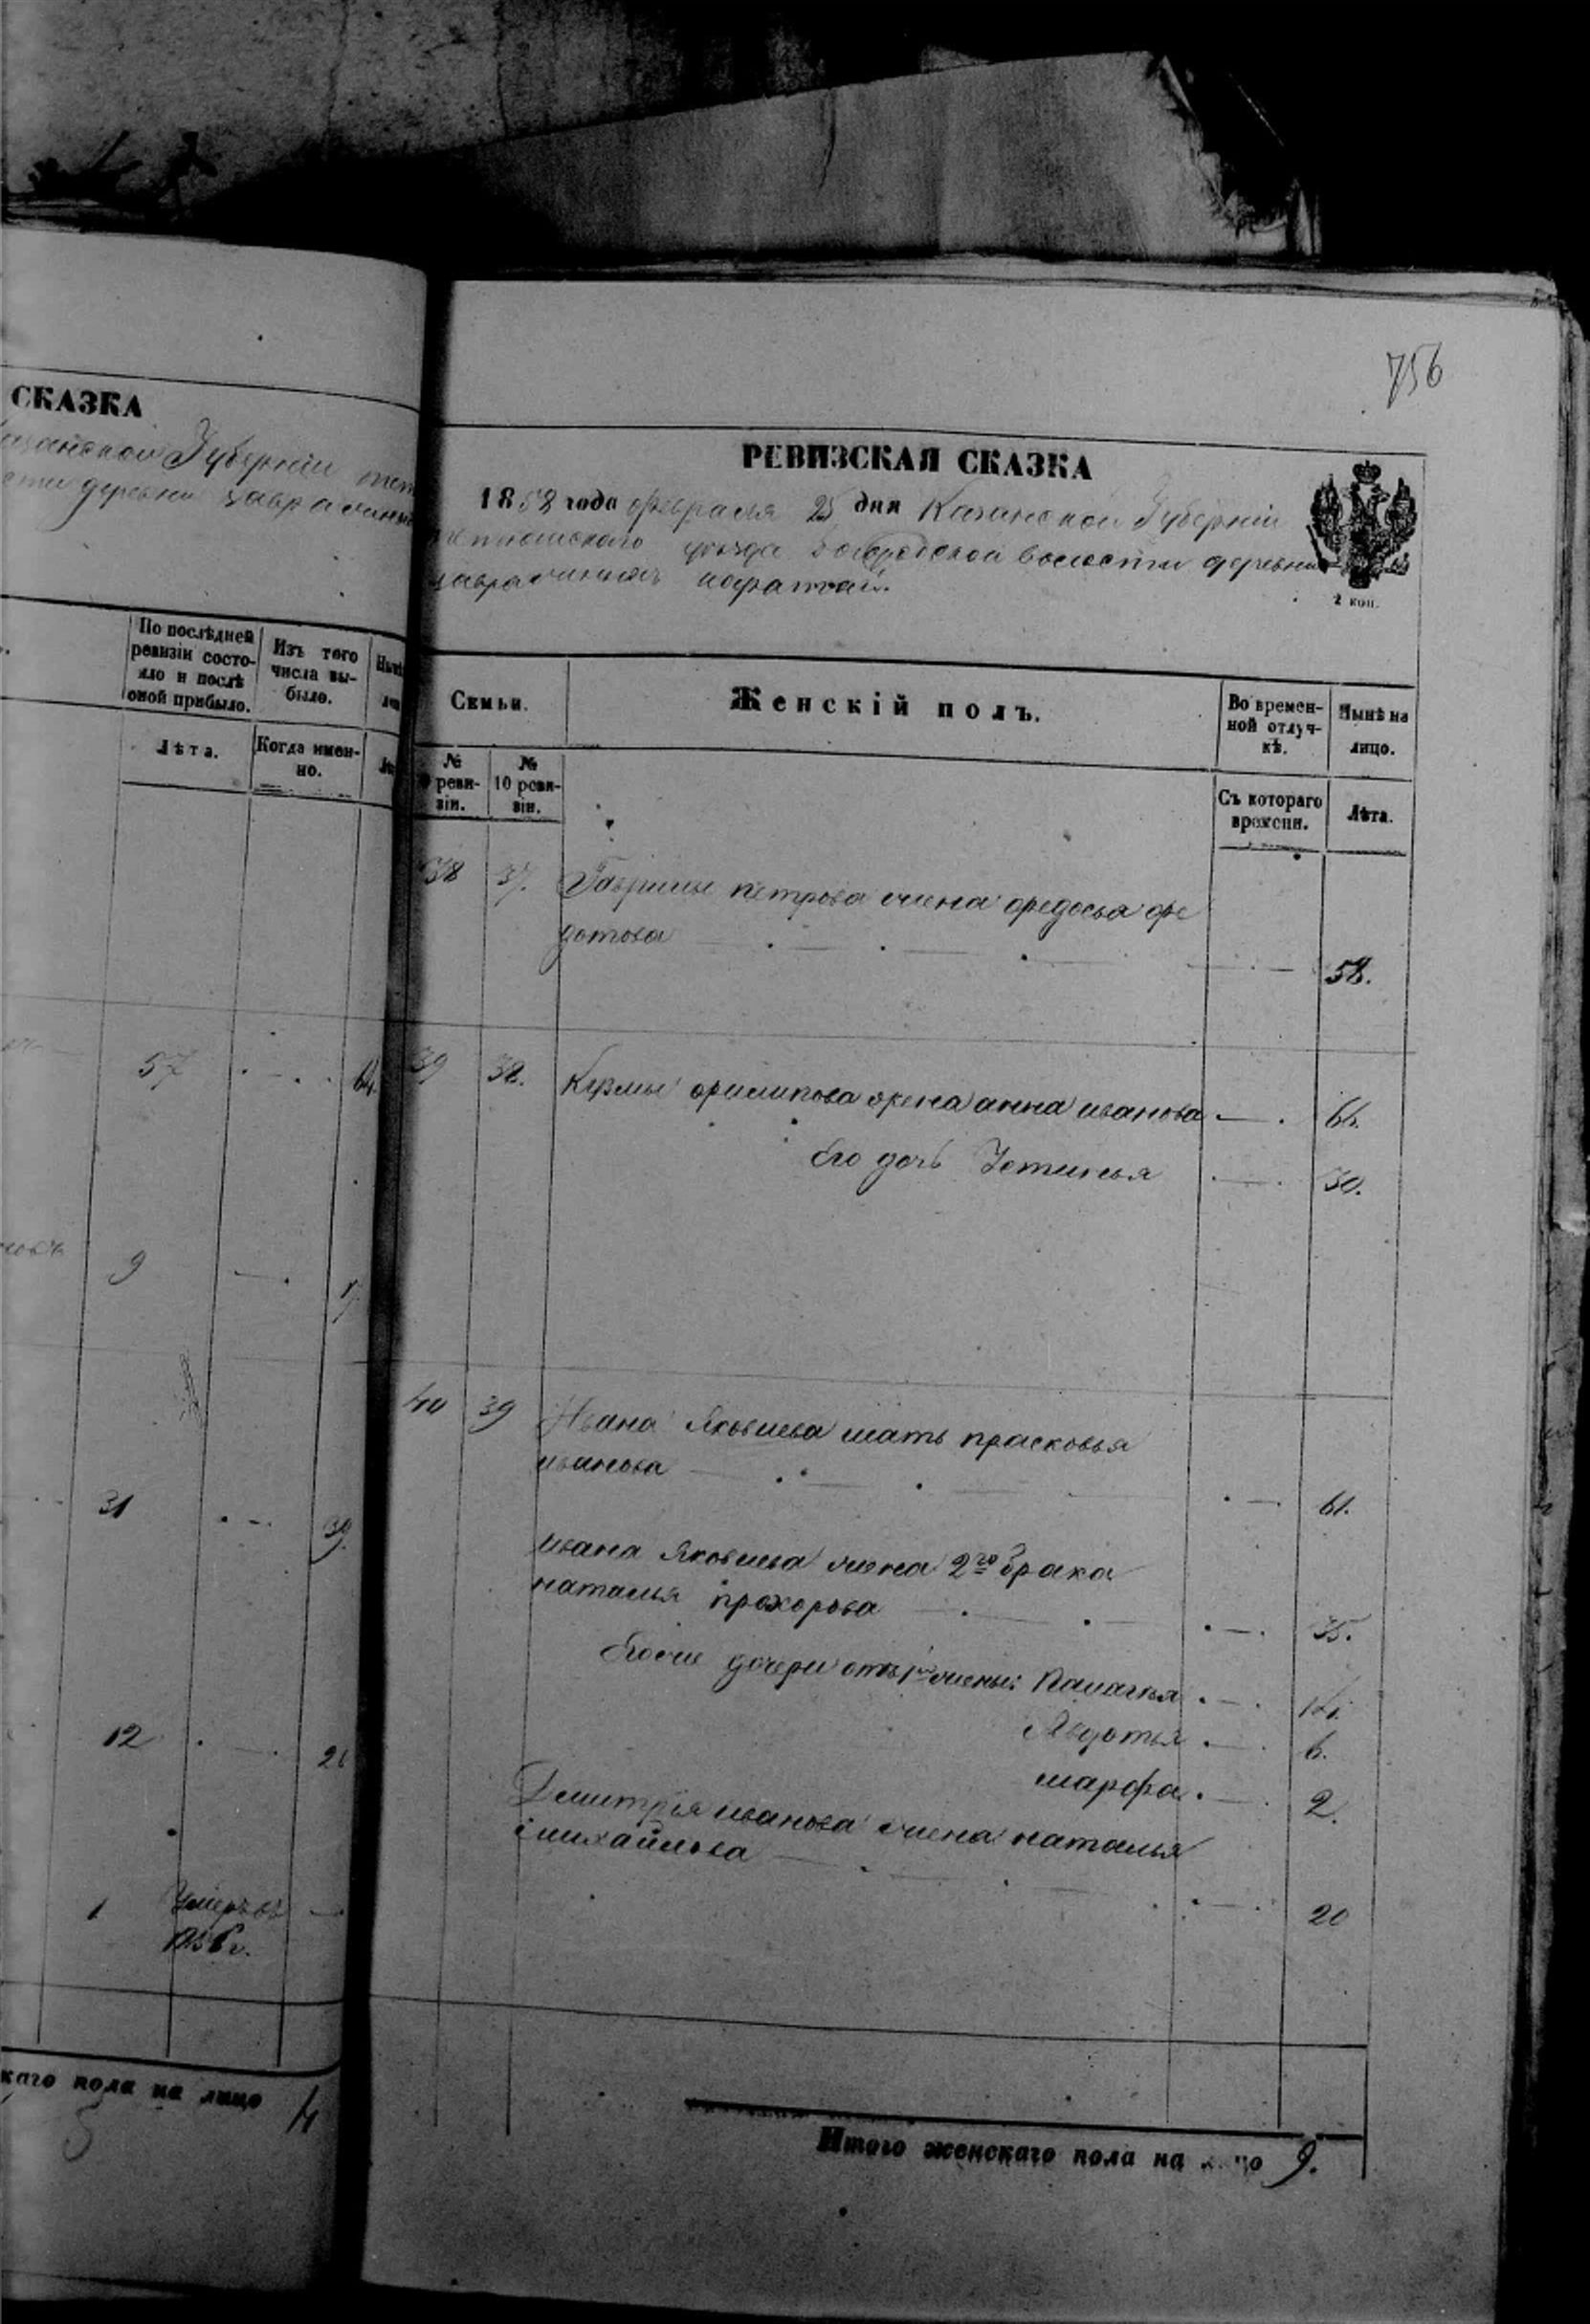 756
СКАЗКА
Губернiи
деревни
По послѣдней ревизiи состо-яло и послѣ оной прибыло.
Изъ того числа вы-было.
Лѣта.
Когда имен-но.
57 64.
9 17
31 39.
12
1 Умеръ въ
каго пола на лицо 4
РЕВИЗСКАЯ СКАЗКА
1858 года февраля 25 дня Казанской Губернiи
уѣзда Богородской волости деревни
2 коп.
Семьи.
Женскiй полъ.
Во времен-ной отлуч-кѣ.
Нынѣ на лицо.
№ реви-зiи.
№ 10 реви-зiи.
Съ котораго времени.
Лѣта.
38 37. Гаврилы петрова жена федосья фе
дотова 58.
39 38. Кузмы филипова жена анна иванова 66.
Его дочь Устинья 30.
40 39 Ивана Яковлева мать прасковья
иванова 61.
ивана Яковлева жена 2го брака
наталья прохорова 35.
дочери жены: Палагья
Авдотья 6.
марфа 2.
Дмитрья иванова жена наталья
михайлова 20
Итого женскаго пола на лицо 9.